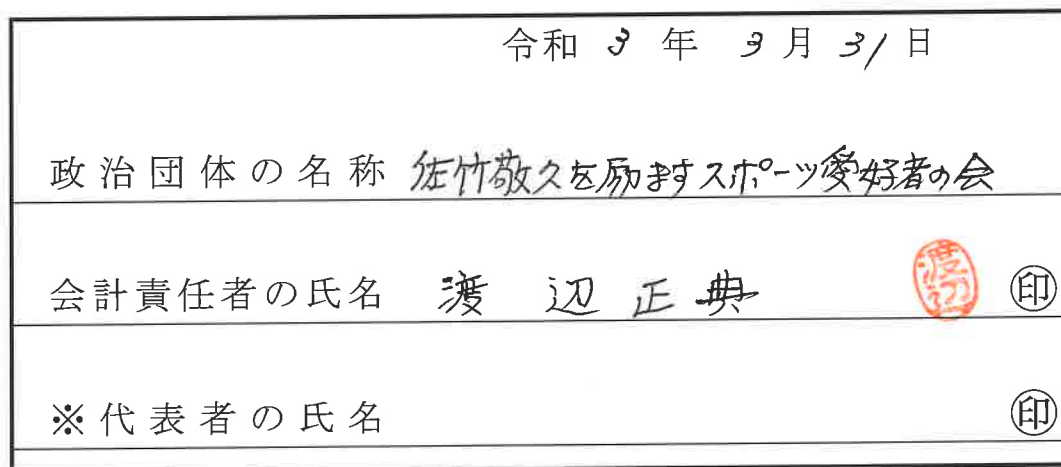 令和 3 年 3月 31 日
政治団体の名称 佐竹敬久を励ますスポーツ愛好者の会
会計責任者の氏名 渡辺正典 渡辺 ㊞
※代表者の氏名 ㊞